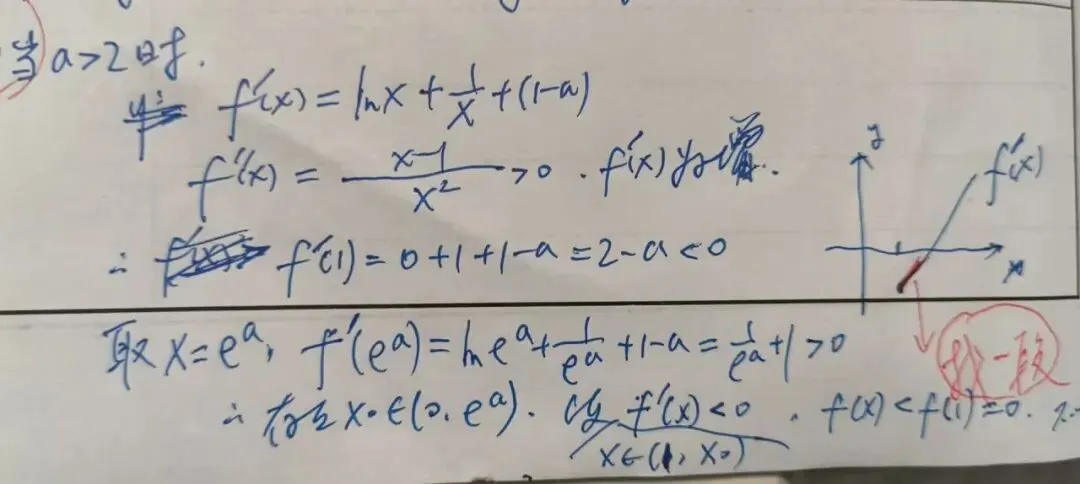 当a>2时.
f'(x) = lnx + 1/x + (1-a)
f''(x) = (x-1)/x² >0 . f'(x)
∴ f'(1) = 0+1+1-a = 2-a <0
y
f'(x)
x
取x=e^a, f'(e^a) = ln e^a + 1/e^a + 1-a = 1/e^a + 1 >0
一段
∴ 存在 x₀∈(0, e^a). f'(x)<0 . f(x)<f(1)=0.
x∈(1, x₀)